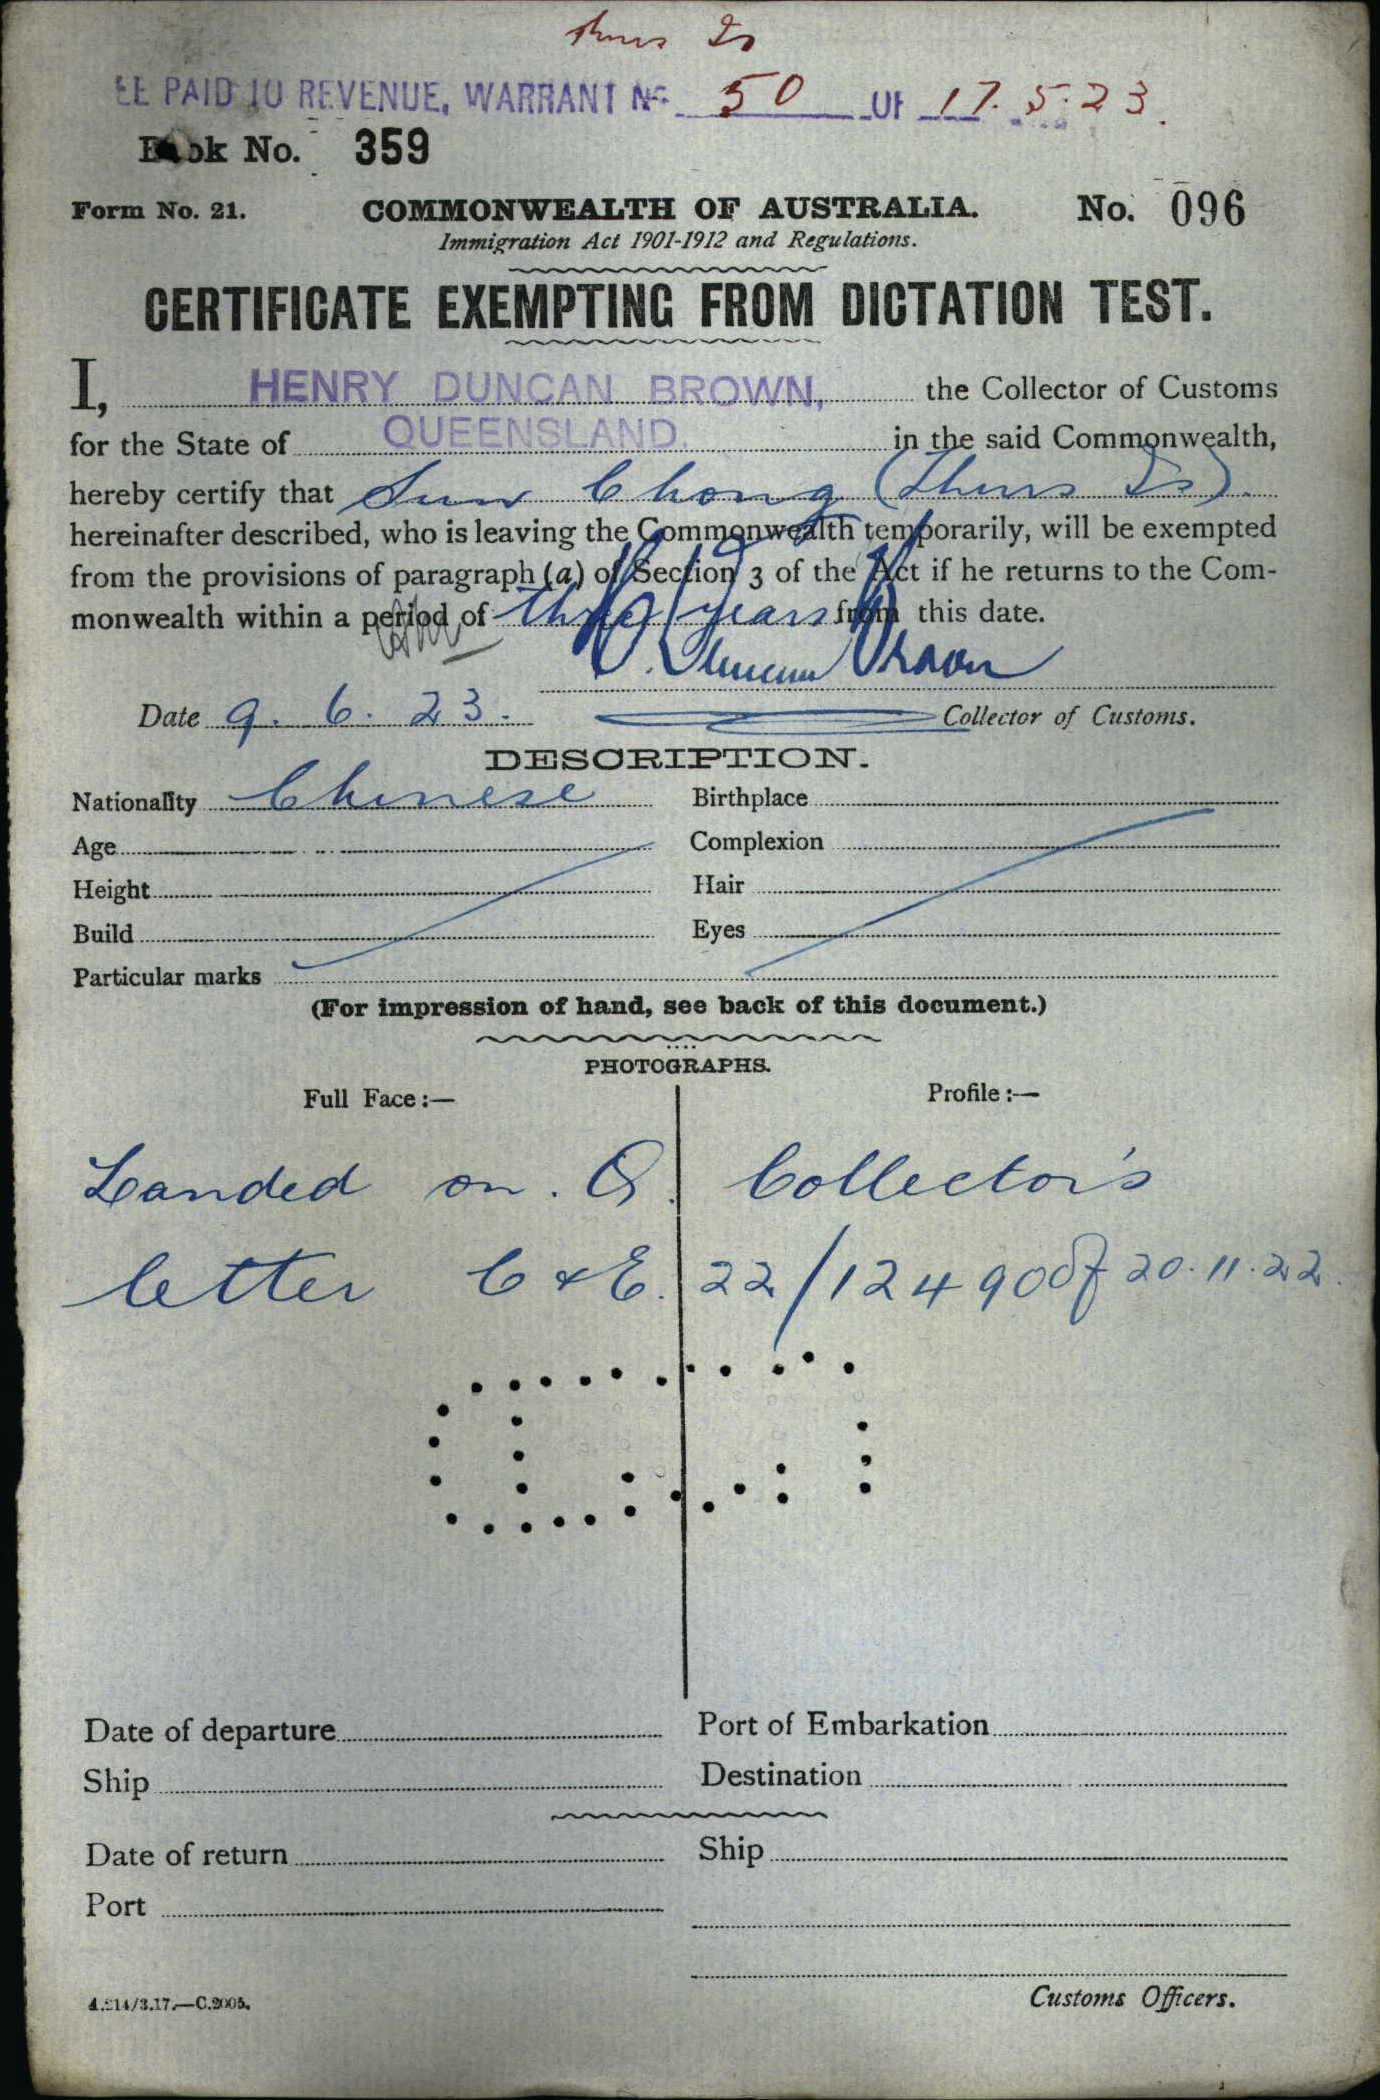 Thurs Is
EE PAID TO REVENUE, WARRANT No 50 OF 17.5.23.
Book No. 359
Form No. 21. COMMONWEALTH OF AUSTRALIA. No. 096
Immigration Act 1901-1912 and Regulations.
CERTIFICATE EXEMPTING FROM DICTATION TEST.
I, HENRY DUNCAN BROWN, the Collector of Customs
for the State of QUEENSLAND. in the said Commonwealth,
hereby certify that Sun Chong (Thurs Is).
hereinafter described, who is leaving the Commonwealth temporarily, will be exempted
from the provisions of paragraph (a) of Section 3 of the Act if he returns to the Com-
monwealth within a period of three years from this date.
H. Duncan Brown
Date 9.6.23. Collector of Customs.
DESCRIPTION.
Nationality Chinese Birthplace
Age Complexion
Height Hair
Build Eyes
Particular marks
(For impression of hand, see back of this document.)
PHOTOGRAPHS.
Full Face:— Profile:—
Landed on. Q. Collector's
letter C & E. 22/12490 of 20.11.22.
Date of departure Port of Embarkation
Ship Destination
Date of return Ship
Port
4.214/3.17.—C.2005. Customs Officers.